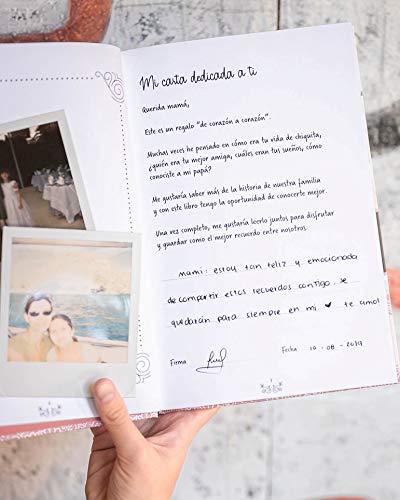 Mi carta dedicada a ti
Querida mamá,
Este es un regalo "de corazón a corazón".
Muchas veces he pensado en cómo era tu vida de chiquita,
¿quién era tu mejor amiga, cuáles eran tus sueños, cómo
conociste a mi papá?
Me gustaría saber más de la historia de nuestra familia
y con este libro tengo la oportunidad de conocerte mejor.
Una vez completo, me gustaría leerlo juntos para disfrutar
y guardar como el mejor recuerdo entre nosotros.
mami: estoy tan feliz y emocionada
de compartir estos recuerdos contigo. Se
quedarán para siempre en mi ♥ te amo!
Firma
Fecha 10 - 08 - 2019